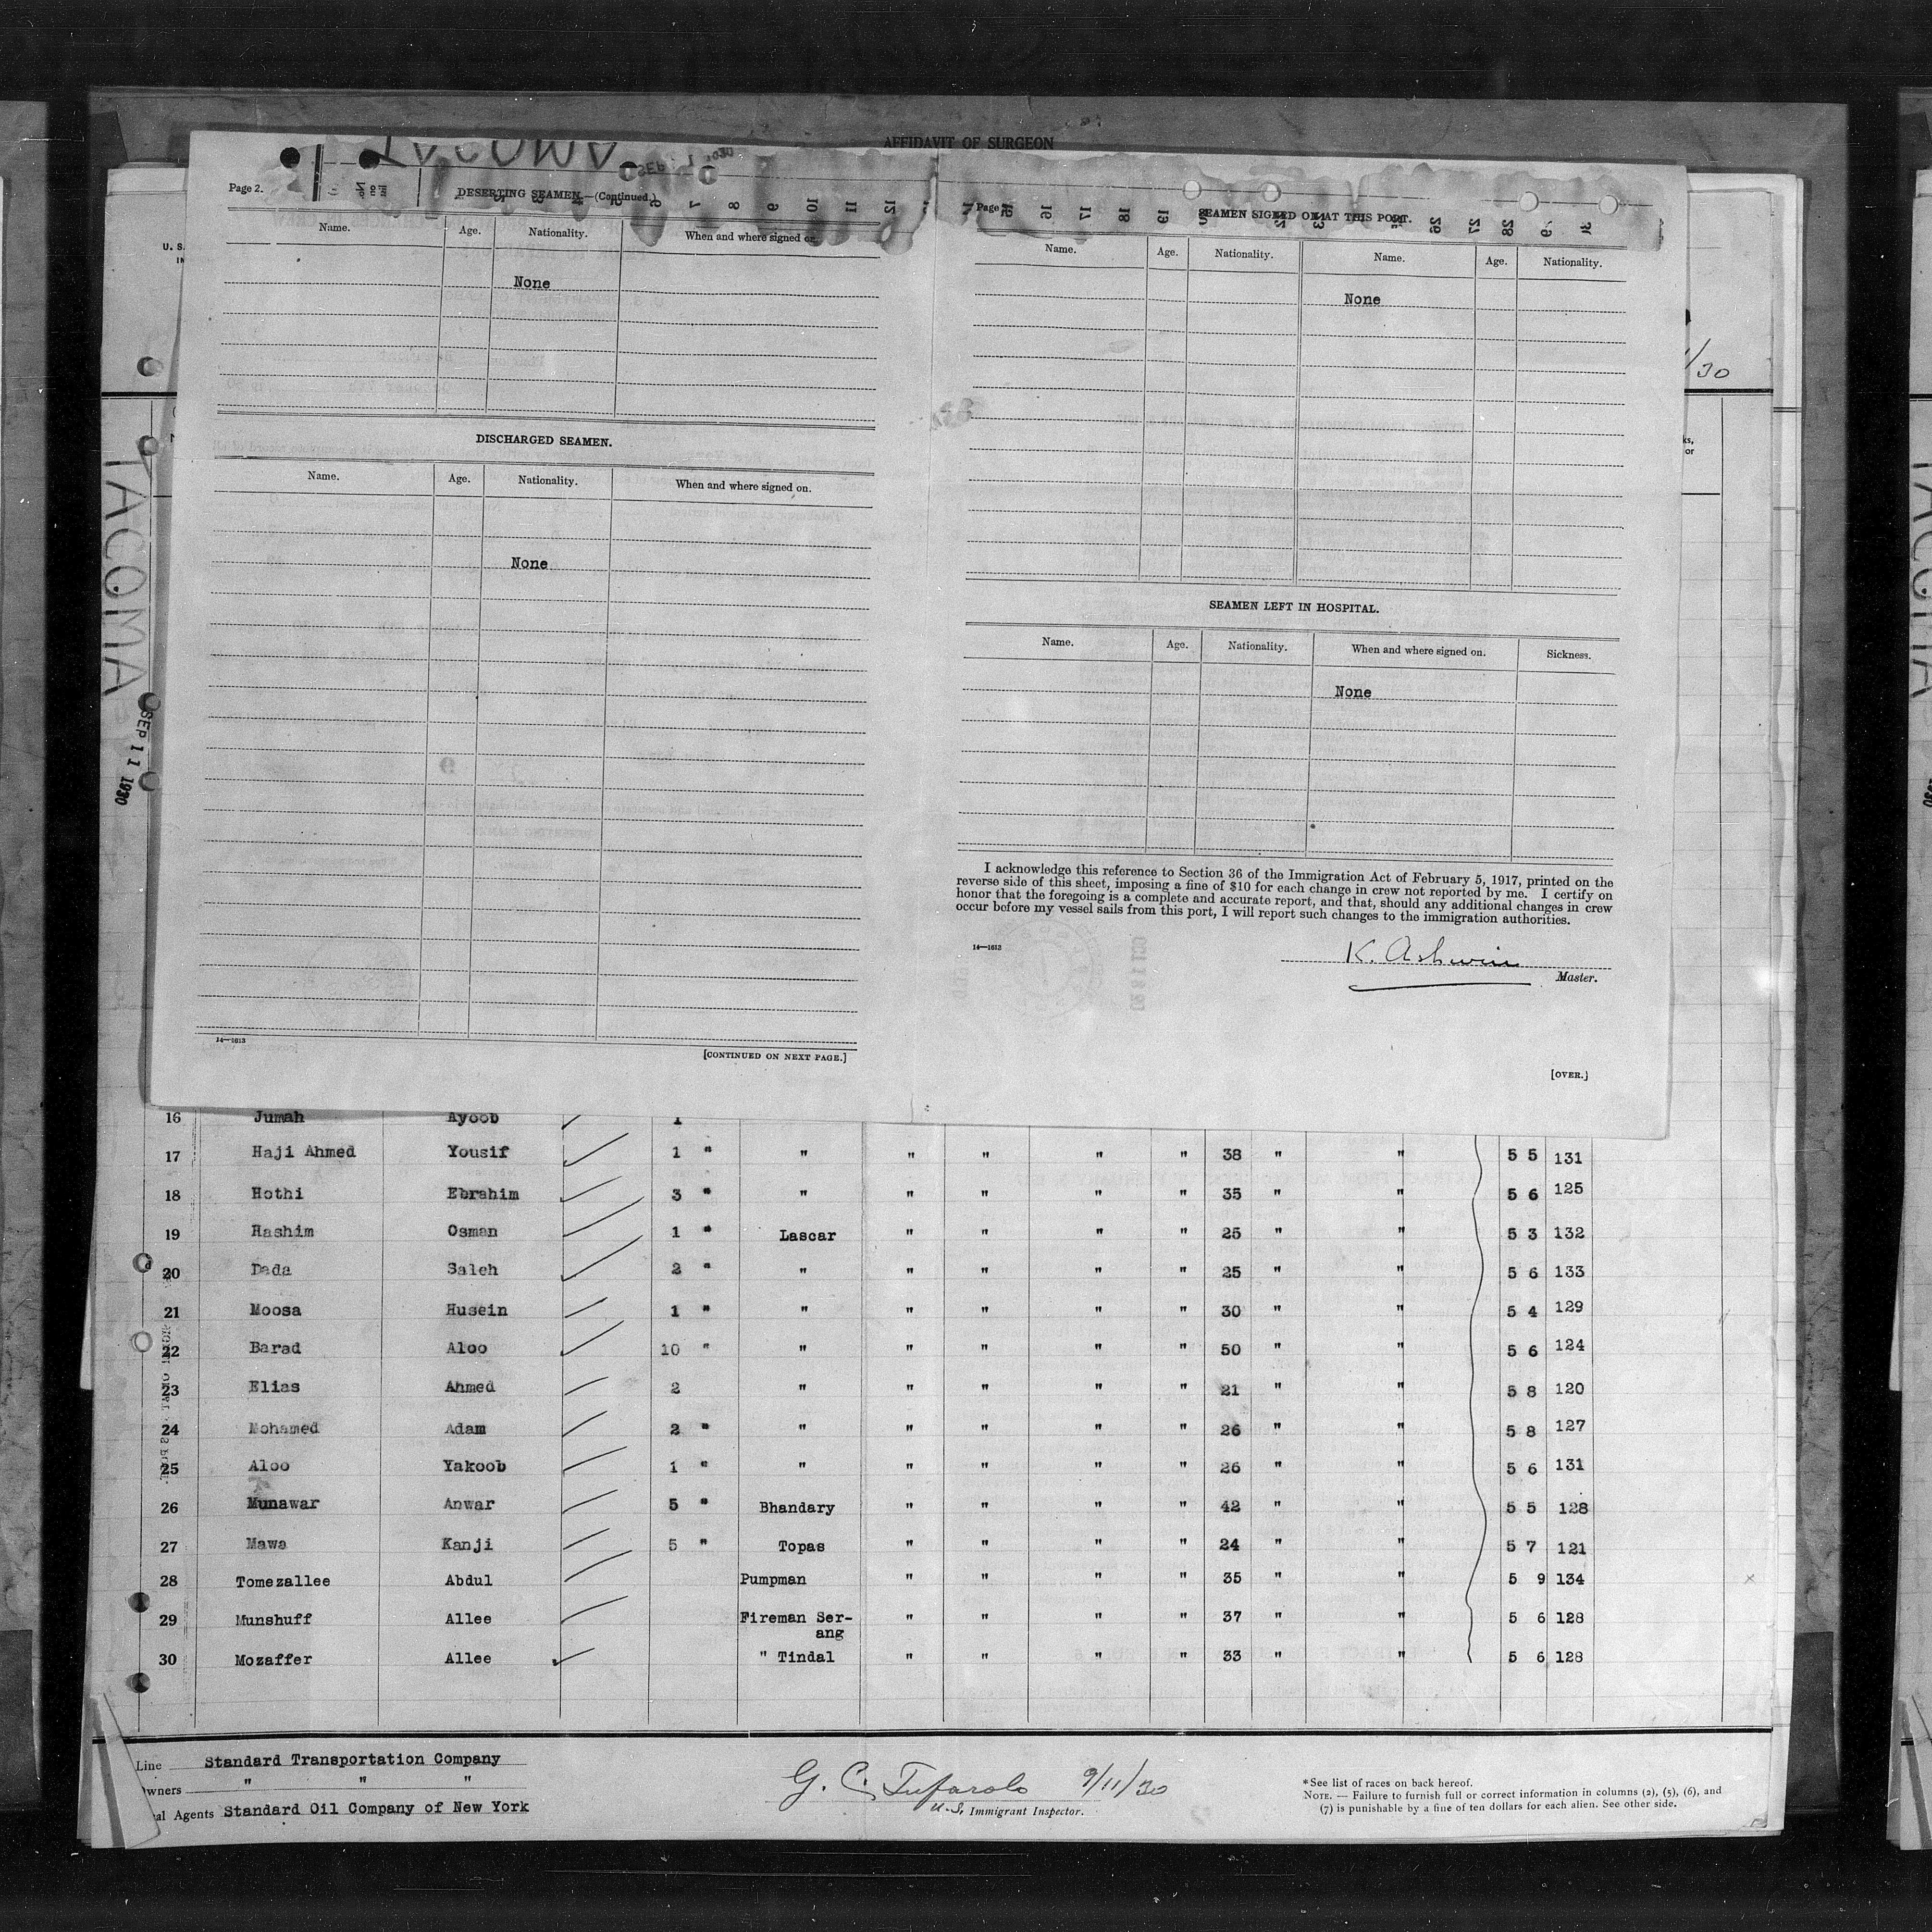 AFFIDAVIT OF SURGEON
Page 2.
DESERTING SEAMEN—(Continued.)
Name. Age. Nationality. When and where signed on.
None
DISCHARGED SEAMEN.
Name. Age. Nationality. When and where signed on.
None
14—1613
[CONTINUED ON NEXT PAGE.]
Page
SEAMEN SIGNED ON AT THIS PORT.
Name. Age. Nationality. Name. Age. Nationality.
None
SEAMEN LEFT IN HOSPITAL.
Name. Age. Nationality. When and where signed on. Sickness.
None
I acknowledge this reference to Section 36 of the Immigration Act of February 5, 1917, printed on the
reverse side of this sheet, imposing a fine of $10 for each change in crew not reported by me. I certify on
honor that the foregoing is a complete and accurate report, and that, should any additional changes in crew
occur before my vessel sails from this port, I will report such changes to the immigration authorities.
14—1613
K. Ashwin
Master.
[OVER.]
TACOMA
SEP 11 1930
/30
16 Jumah Ayoob 1
17 Haji Ahmed Yousif 1 " " " " " " 38 " " 5 5 131
18 Hothi Ebrahim 3 " " " " " " 35 " " 5 6 125
19 Hashim Osman 1 " Lascar " " " " 25 " " 5 3 132
20 Dada Saleh 2 " " " " " " 25 " " 5 6 133
21 Moosa Husein 1 " " " " " " 30 " " 5 4 129
22 Barad Aloo 10 " " " " " " 50 " " 5 6 124
23 Elias Ahmed 2 " " " " " 21 " " 5 8 120
24 Mohamed Adam 2 " " " " " " 26 " " 5 8 127
25 Aloo Yakoob 1 " " " " " " 26 " " 5 6 131
26 Munawar Anwar 5 " Bhandary " " " " 42 " " 5 5 128
27 Mawa Kanji 5 " Topas " " " " 24 " " 5 7 121
28 Tomezallee Abdul Pumpman " " " " 35 " " 5 9 134
29 Munshuff Allee Fireman Ser- " " " " 37 " " 5 6 128
ang
30 Mozaffer Allee " Tindal " " " " 33 " " 5 6 128
Line Standard Transportation Company
Owners " " "
Agents Standard Oil Company of New York
G. C. Tufarolo 9/11/30
U.S. Immigrant Inspector.
*See list of races on back hereof.
NOTE. — Failure to furnish full or correct information in columns (2), (5), (6), and
(7) is punishable by a fine of ten dollars for each alien. See other side.